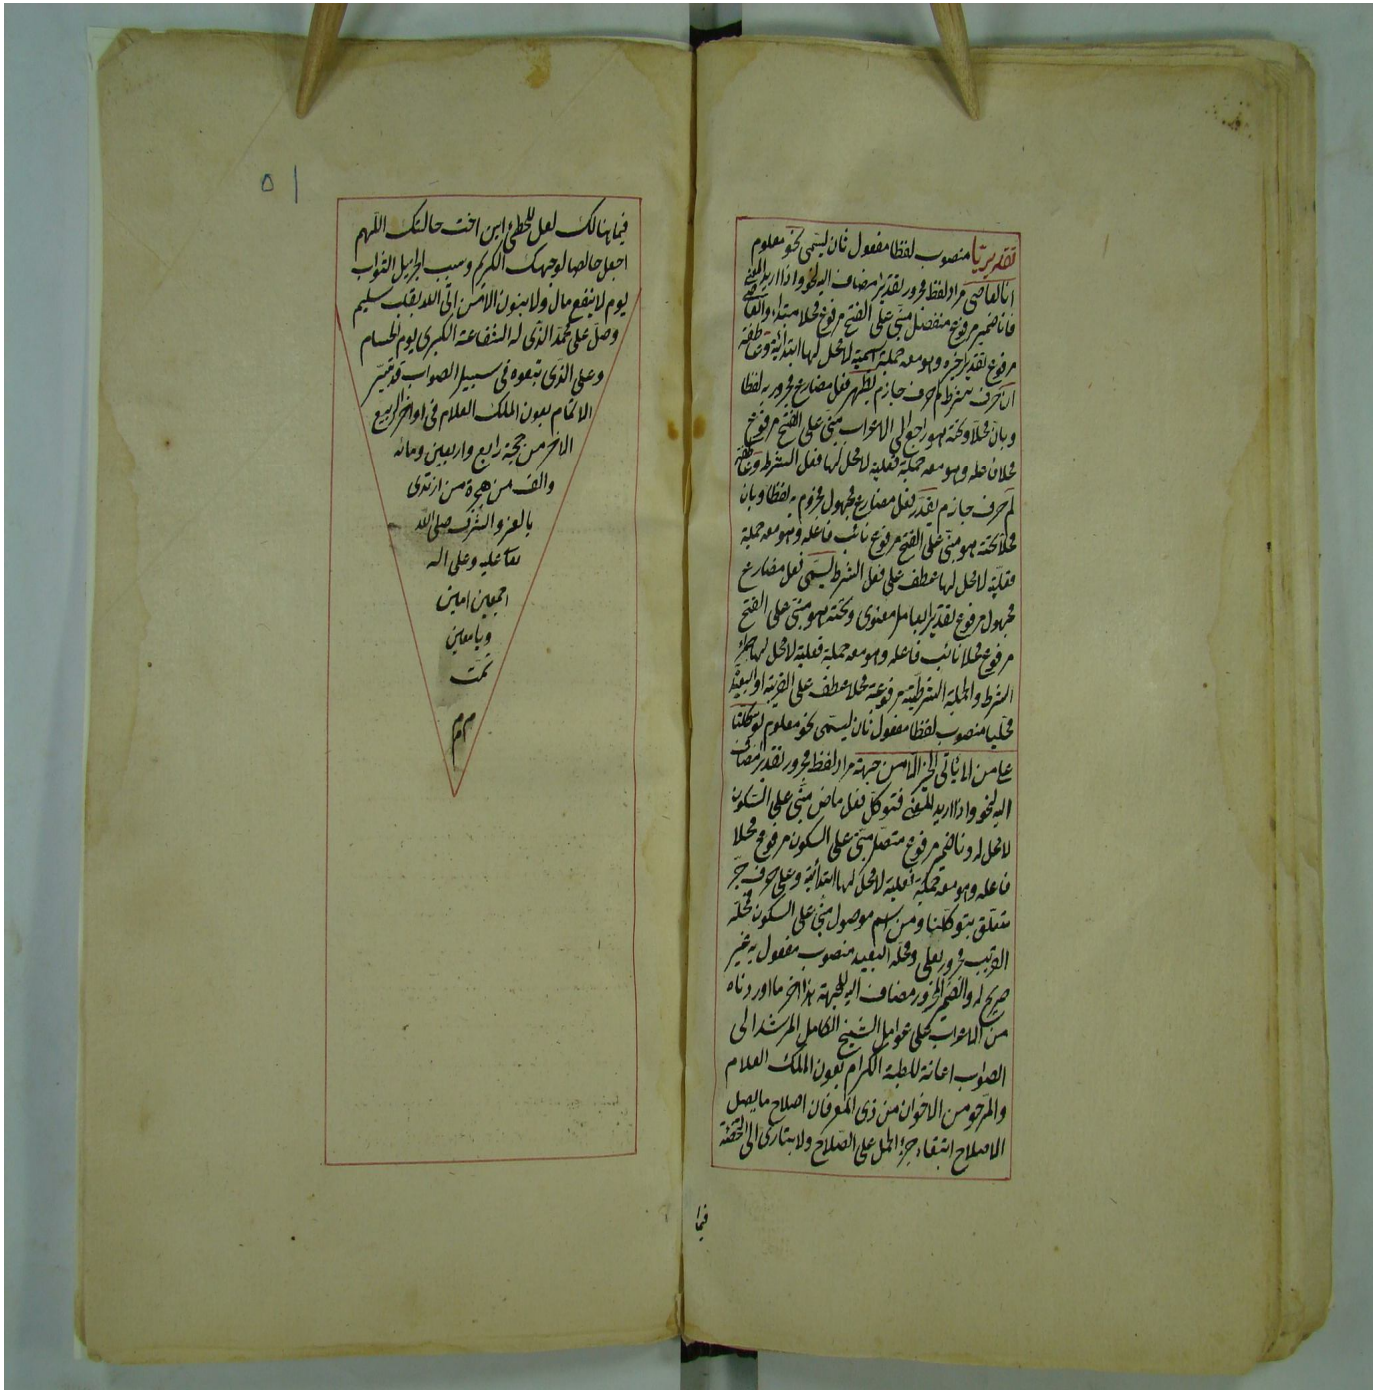 تقديريا منصوب لفظا مفعول ثان ليسمى نحو معلوم
انا العاصى مراد لفظ مجرور تقديرا مضاف اليه لنحو واذا اريد المعنى
فانا ضمير مرفوع منفصل مبنى على الفتح مرفوع محلا مبتداء والعاصى
مرفوع تقديرا خبره وهو معه جملة اسمية لا محل لها ابتدائية وعاطفة
ان حرف شرط لم حرف جازم يظهر فعل مضارع مجزوم به لفظا
وبان محلا وتحته هو راجع الى الاعراب مبنى على الفتح مرفوع
محلا فاعله وهو معه جملة فعلية لا محل لها فعل الشرط وعاطفة
لم حرف جازم يقدر فعل مضارع مجهول مجزوم به لفظا وبان
محلا تحته هو مبنى على الفتح مرفوع نائب فاعله وهو معه جملة
فعلية لا محل لها عطف على فعل الشرط يسمى فعل مضارع
مجهول مرفوع تقديرا بعامل معنوى وتحته هو مبنى على الفتح
مرفوع محلا نائب فاعله وهو معه جملة فعلية لا محل لها جزاء
الشرط والجملة الشرطية مرفوعة محلا عطف على القريبة او البعيدة
محليا منصوب لفظا مفعول ثان ليسمى نحو معلوم توكلنا
على من لا يأتى الخير الا من جهته مراد لفظ مجرور تقديرا مضاف
اليه لنحو واذا اريد المعنى فتوكل فعل ماض مبنى على السكون
لا محل له ونا ضمير مرفوع متصل مبنى على السكون مرفوع محلا
فاعله وهو معه جملة فعلية لا محل لها ابتدائية وعلى حرف جر
متعلق بتوكلنا ومن اسم موصول مبنى على السكون محله
القريب مجرور بعلى ومحله البعيد منصوب مفعول به غير
صريح له والضمير المجرور مضاف اليه للجهة هذا آخر ما اوردناه
من الاعراب على عوامل الشيخ الكامل المرشد الى
الصواب اعانة للطلبة الكرام بعون الملك العلام
والمرجو من الاخوان من ذى العرفان اصلاح ما يصل
الاصلاح ابتغاء جزء الحمل على الصلاح ولا يتارى الى التخطئة
فيما
٥١
فيما هنالك لعل المخطئ ابن اخت خالتك اللهم
اجعل خالصا لوجهك الكريم وسبب لجزيل الثواب
يوم لا ينفع مال ولا بنون الا من اتى الله بقلب سليم
وصل على محمد الذى له الشفاعة الكبرى يوم الحسام
وعلى الذى تبعوه فى سبيل الصواب قد تيسر
الاتمام بعون الملك العلام فى اواخر الربيع
الاخر من حجة رابع واربعين ومائة
والف من هجرة من ارتدى
بالعز والشرف صلى الله
تعا عليه وعلى اله
اجمعين امين
ويا معين
تمت
م م